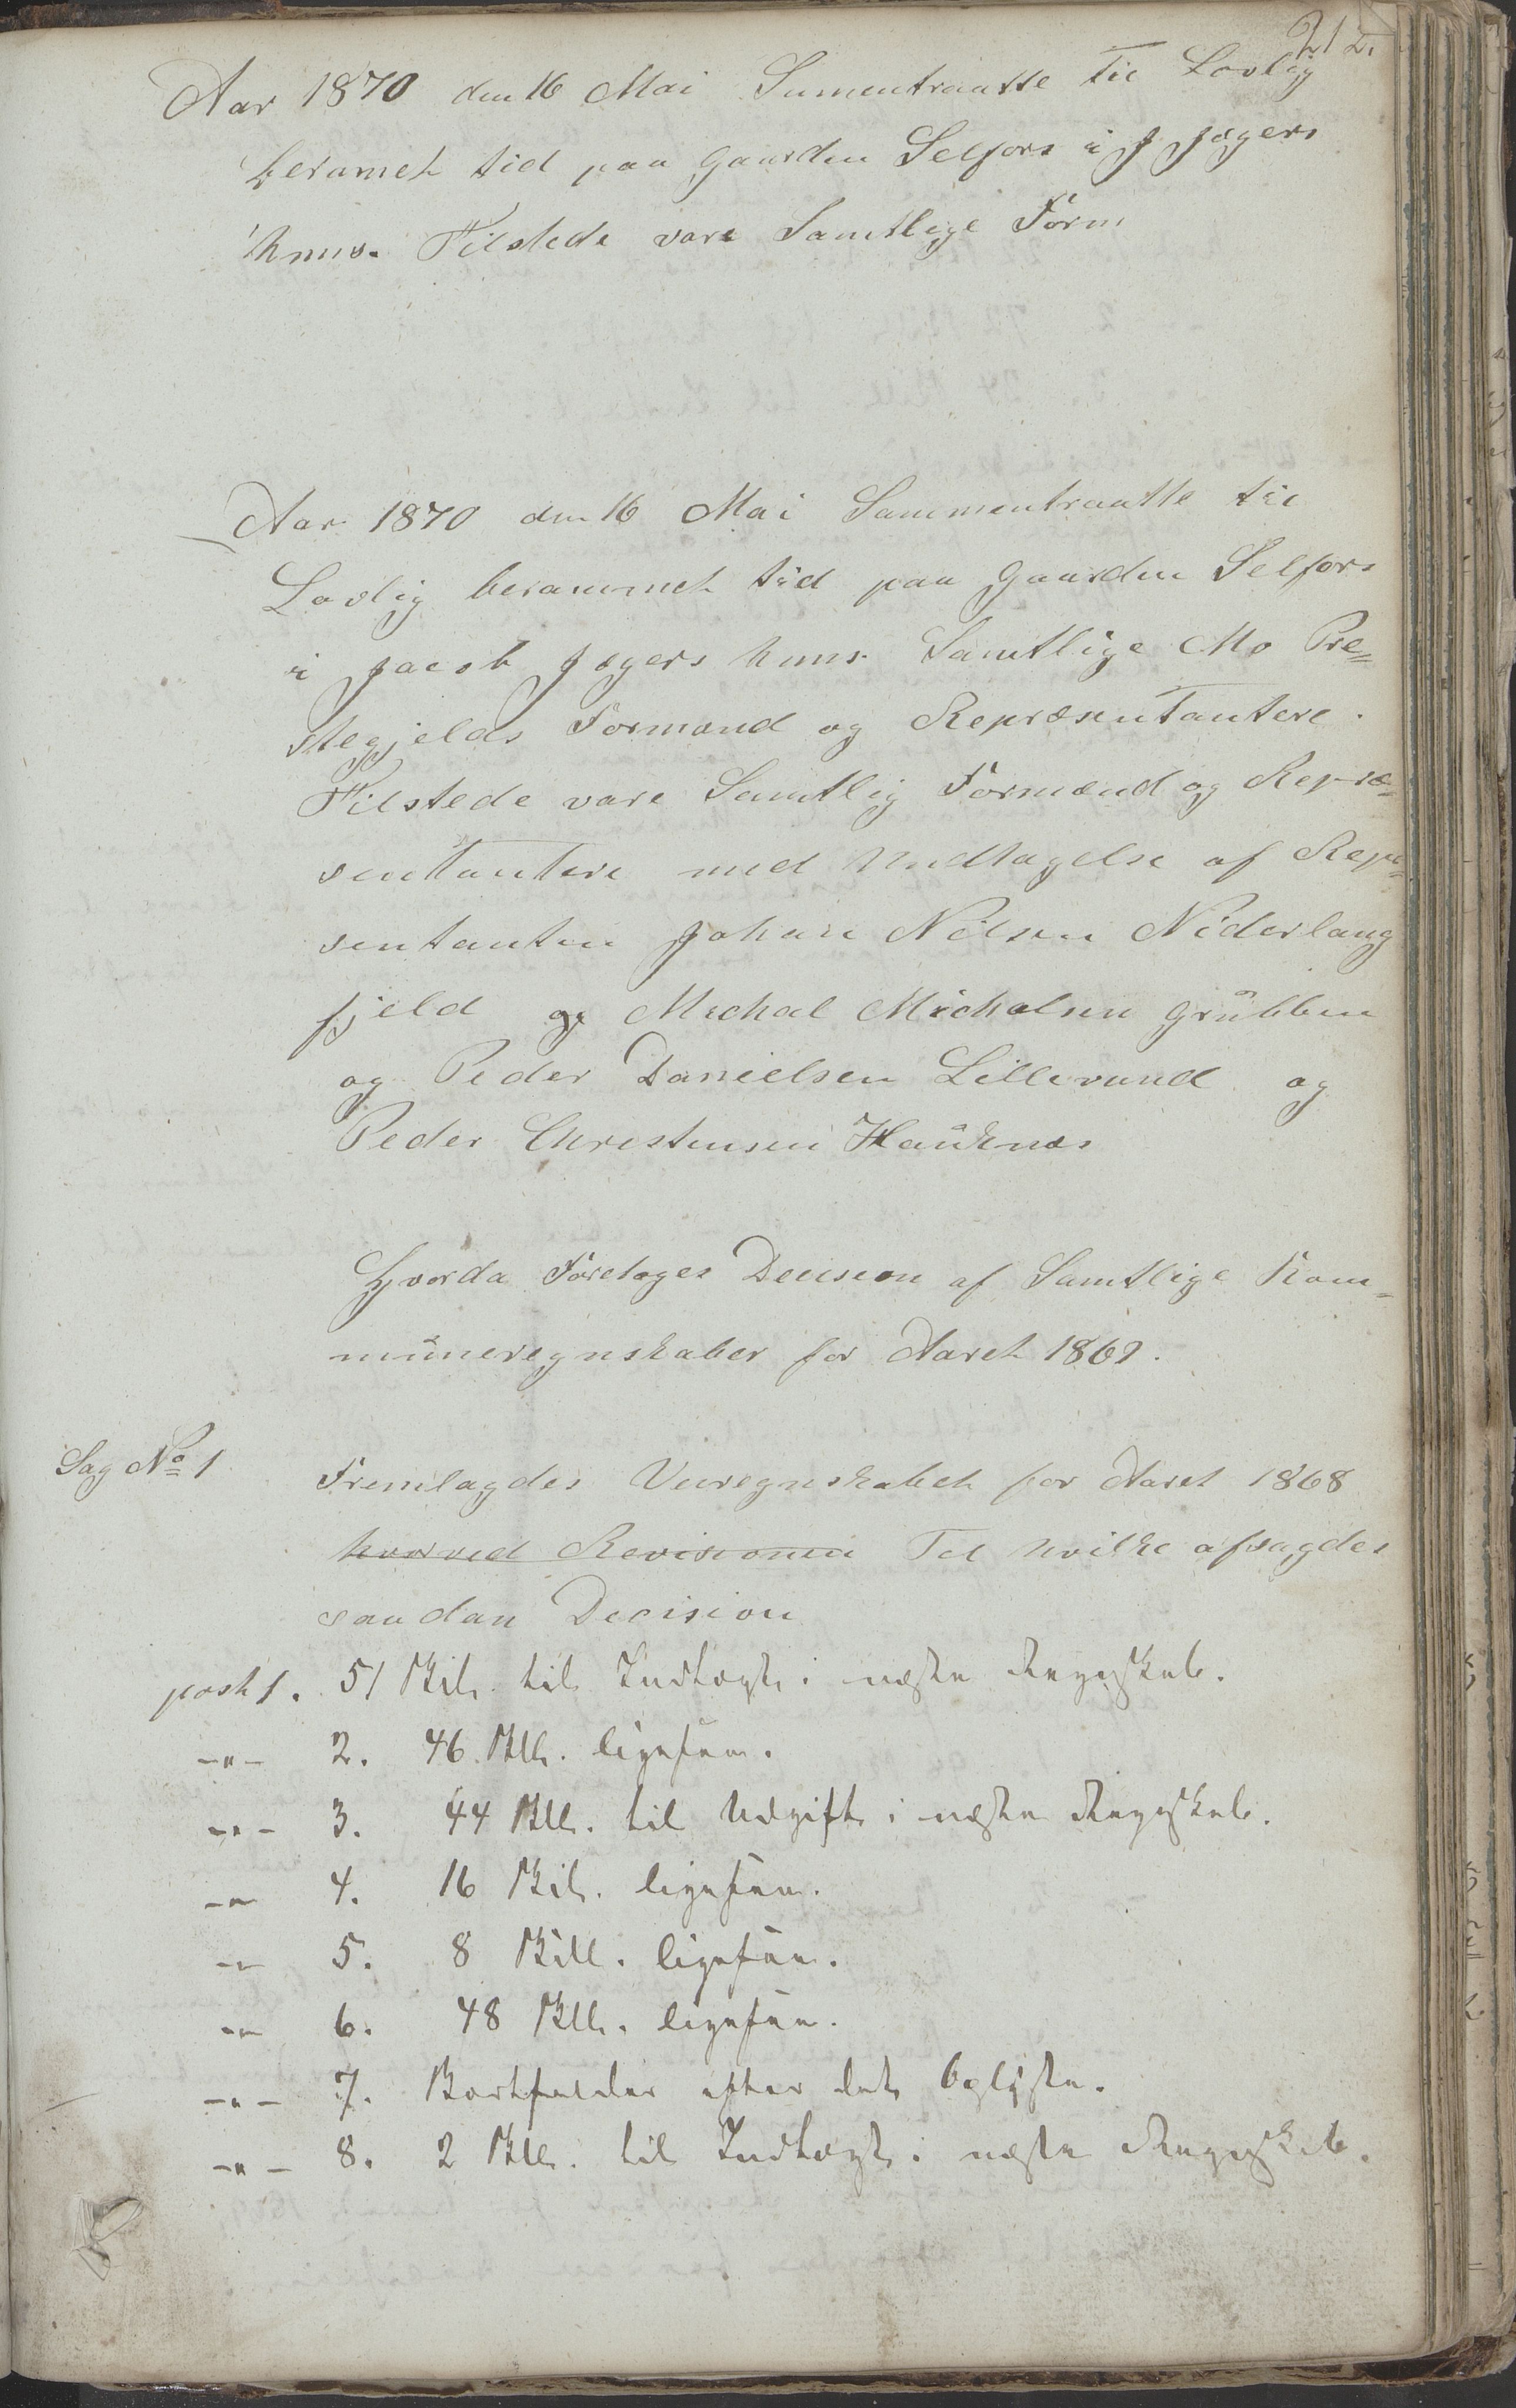 212.
Aar 1870 den 16 Mai Sumentraatte til Lovlig
beramet tid paa Gaarden Selfors i J Jægers
huus. Tilstede vare Samtlige Form
Aar 1870 den 16 Mai Sammentraatte til
Lovlig berammet tid paa Gaarden Selfors
i Jacob Jægers huus Samtlige Mo Pre=
stegjelds Formænd og Repræsentantere.
Tilstede vare Samtlig Formænd og Repræ=
sentantere med Undtagelse af Repre=
sentanten Johan Nilsen Niderlang
fjeld og Michal Micholsen Grübben
og Peder Danielsen Lillevand og
Peder Christensen Hauknæs
Hvorda Foretoges Decision af Samtlige Kom=
müneregnskaber for Aaret 1869.
Sag No 1 Fremlagdes Veiregnskabet for Aaret 1868
hvorved Revisionen Til hvilke afsagdes
saadan Decision
post 1. 51 Skil. til Indtægt i næste Regnskab.
-"- 2. 46 Skll. ligesaa.
-"- 3. 44 Skll. til Udgift i næste Regnskab.
-"- 4. 16 Skil. ligesaa.
-"- 5. 8 Skill. ligesaa.
-"- 6. 48 Skll. ligesaa.
-"- 7. Bortfalder efter det Oplyste.
-"- 8. 2 Skll. til Indtægt i næste Regnskab.